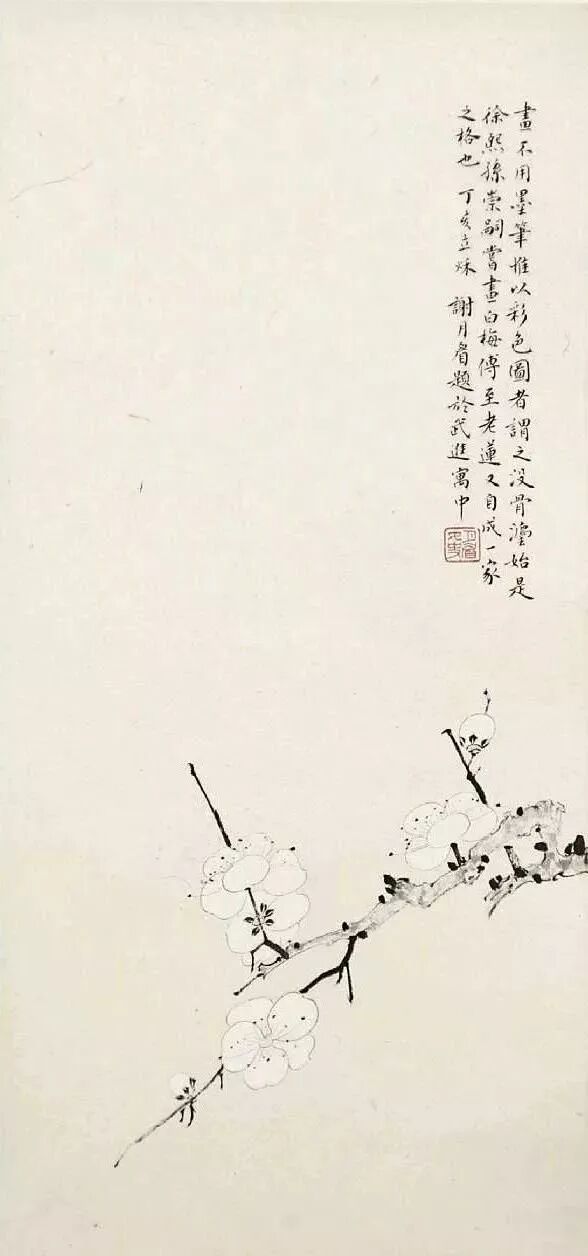 畫不用墨筆惟以彩色圖者謂之没骨瀍始是
徐熙孫崇嗣嘗畫白梅傅至老蓮又自成一家
之格也 丁亥立秌 謝月眉題於武進寓中